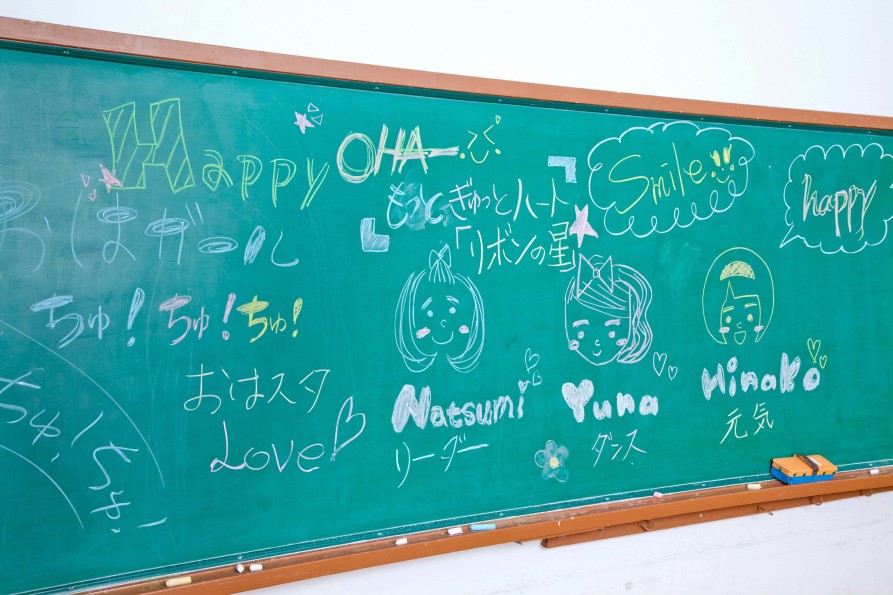 Happy OHA-
Smile
happy
おはガール
もっとぎゅっとハート
「リボンの星」
ちゅ!ちゅ!ちゅ!
おはスタ
Love
Natsumi
リーダー
Yuna
ダンス
Hinako
元気